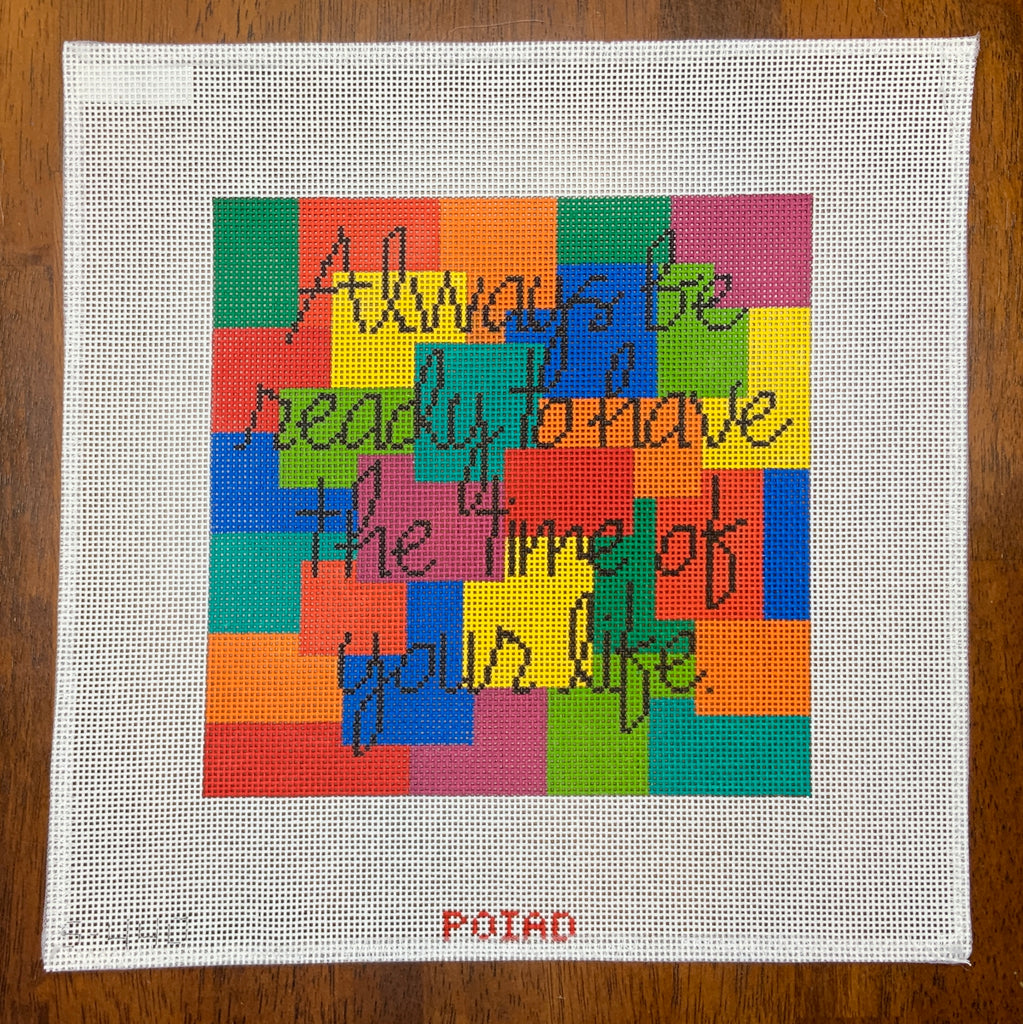 Always be
ready to have
the time of
your life.
POIAD